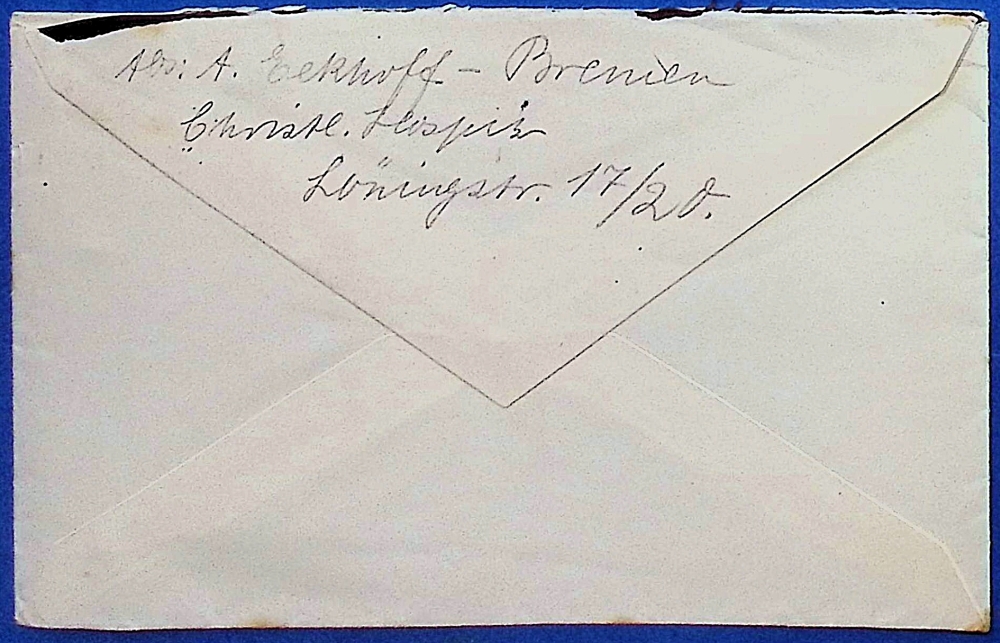 Abs: A. Eekhoff – Bremen
Christl. Hospiz
Löningstr. 17/20.